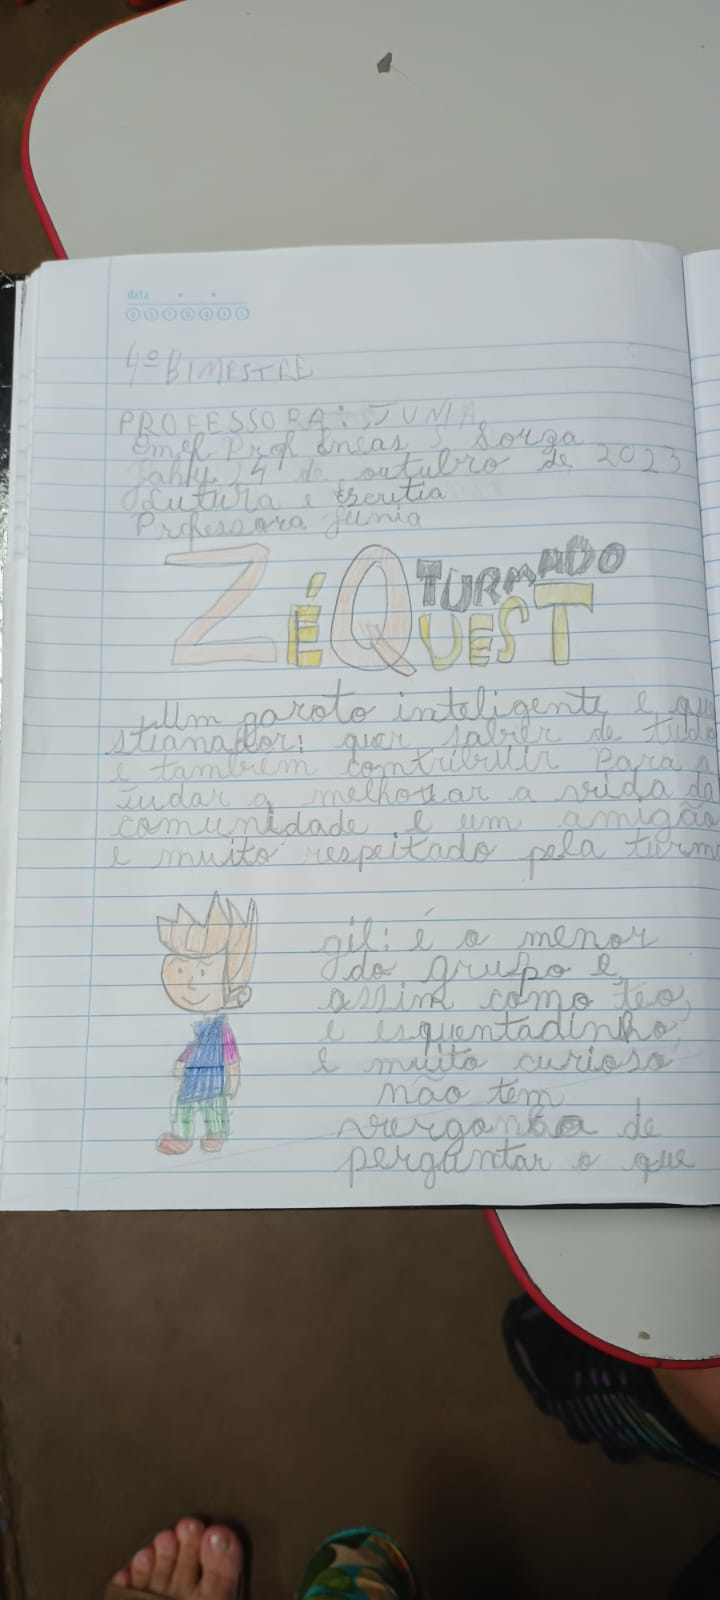 data
4º BIMESTRE
PROFESSORA: JUNIA
Emef Prof Eneas
24 de outubro de 2023
Leitura e Escritia
Professora Junia
TURMA DO
ZÉ QUEST
Um garoto inteligente e que
stianador: quer saber de tudo
e também contribuir para a
judar a melhorar a vida da
comunidade e um amigão
e muito respeitado pela turma
gil: é o menor
do grupo e,
assim como teo,
e esquentadinho,
e muito curioso
não tem
vergonha de
perguntar o que